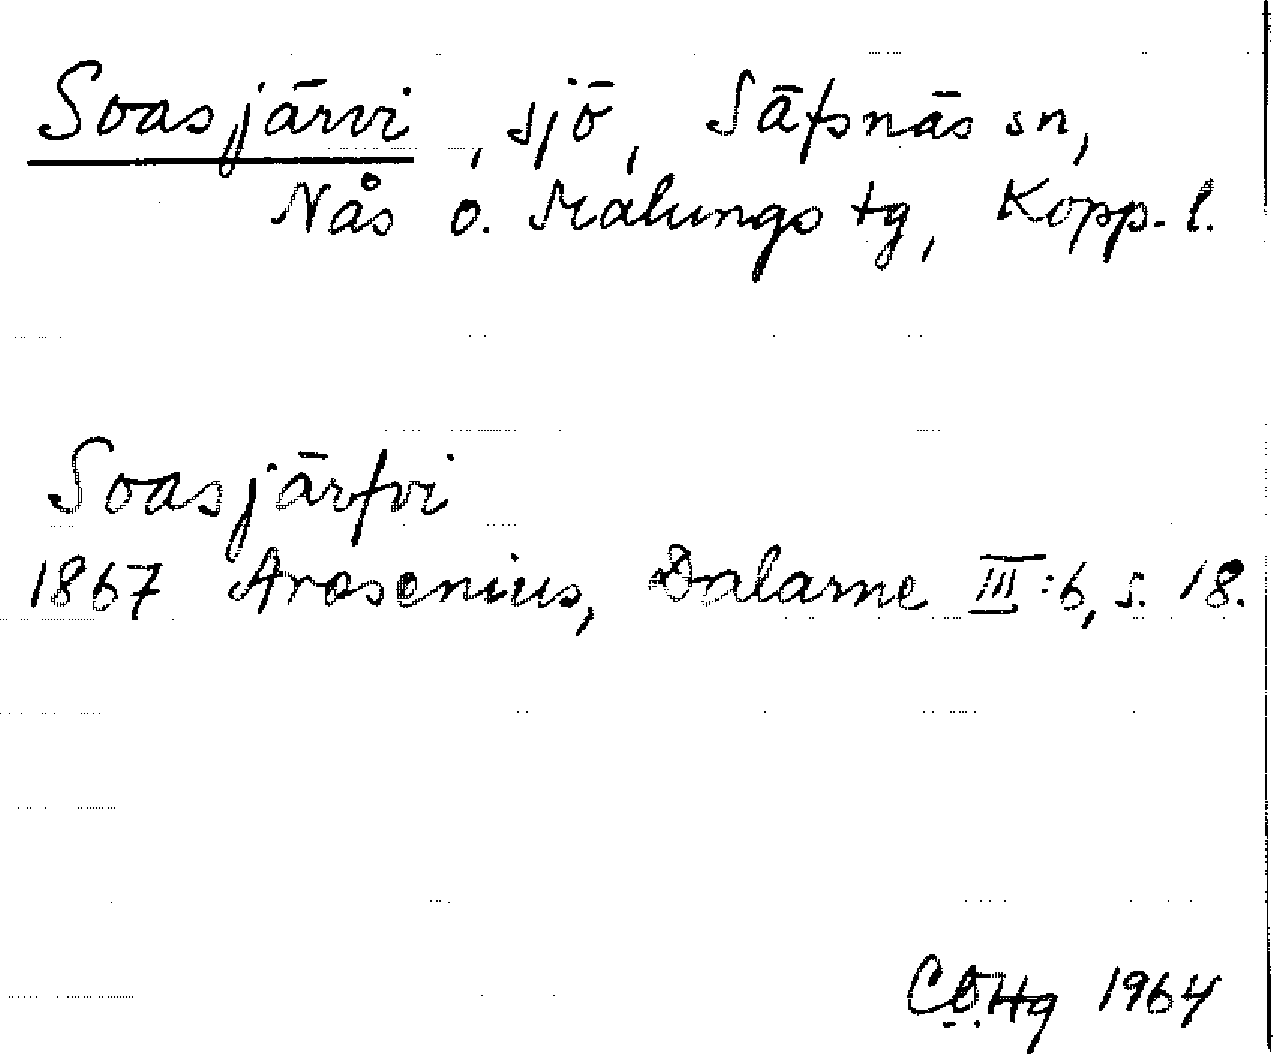 Soasjärvi, sjö, Säfsnäs sn,
Nås o. Malungs tg, Kopp. l.
Soasjärfvi
1867 Arosenius, Dalarne III:6, s. 18.
CÖHg 1964